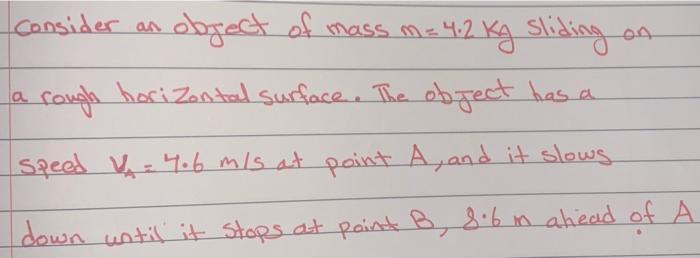 Consider an object of mass m=4.2 Kg sliding on
a rough horizontal surface. The object has a
speed V_A = 4.6 m/s at point A, and it slows
down until it stops at point B, 8.6 m ahead of A